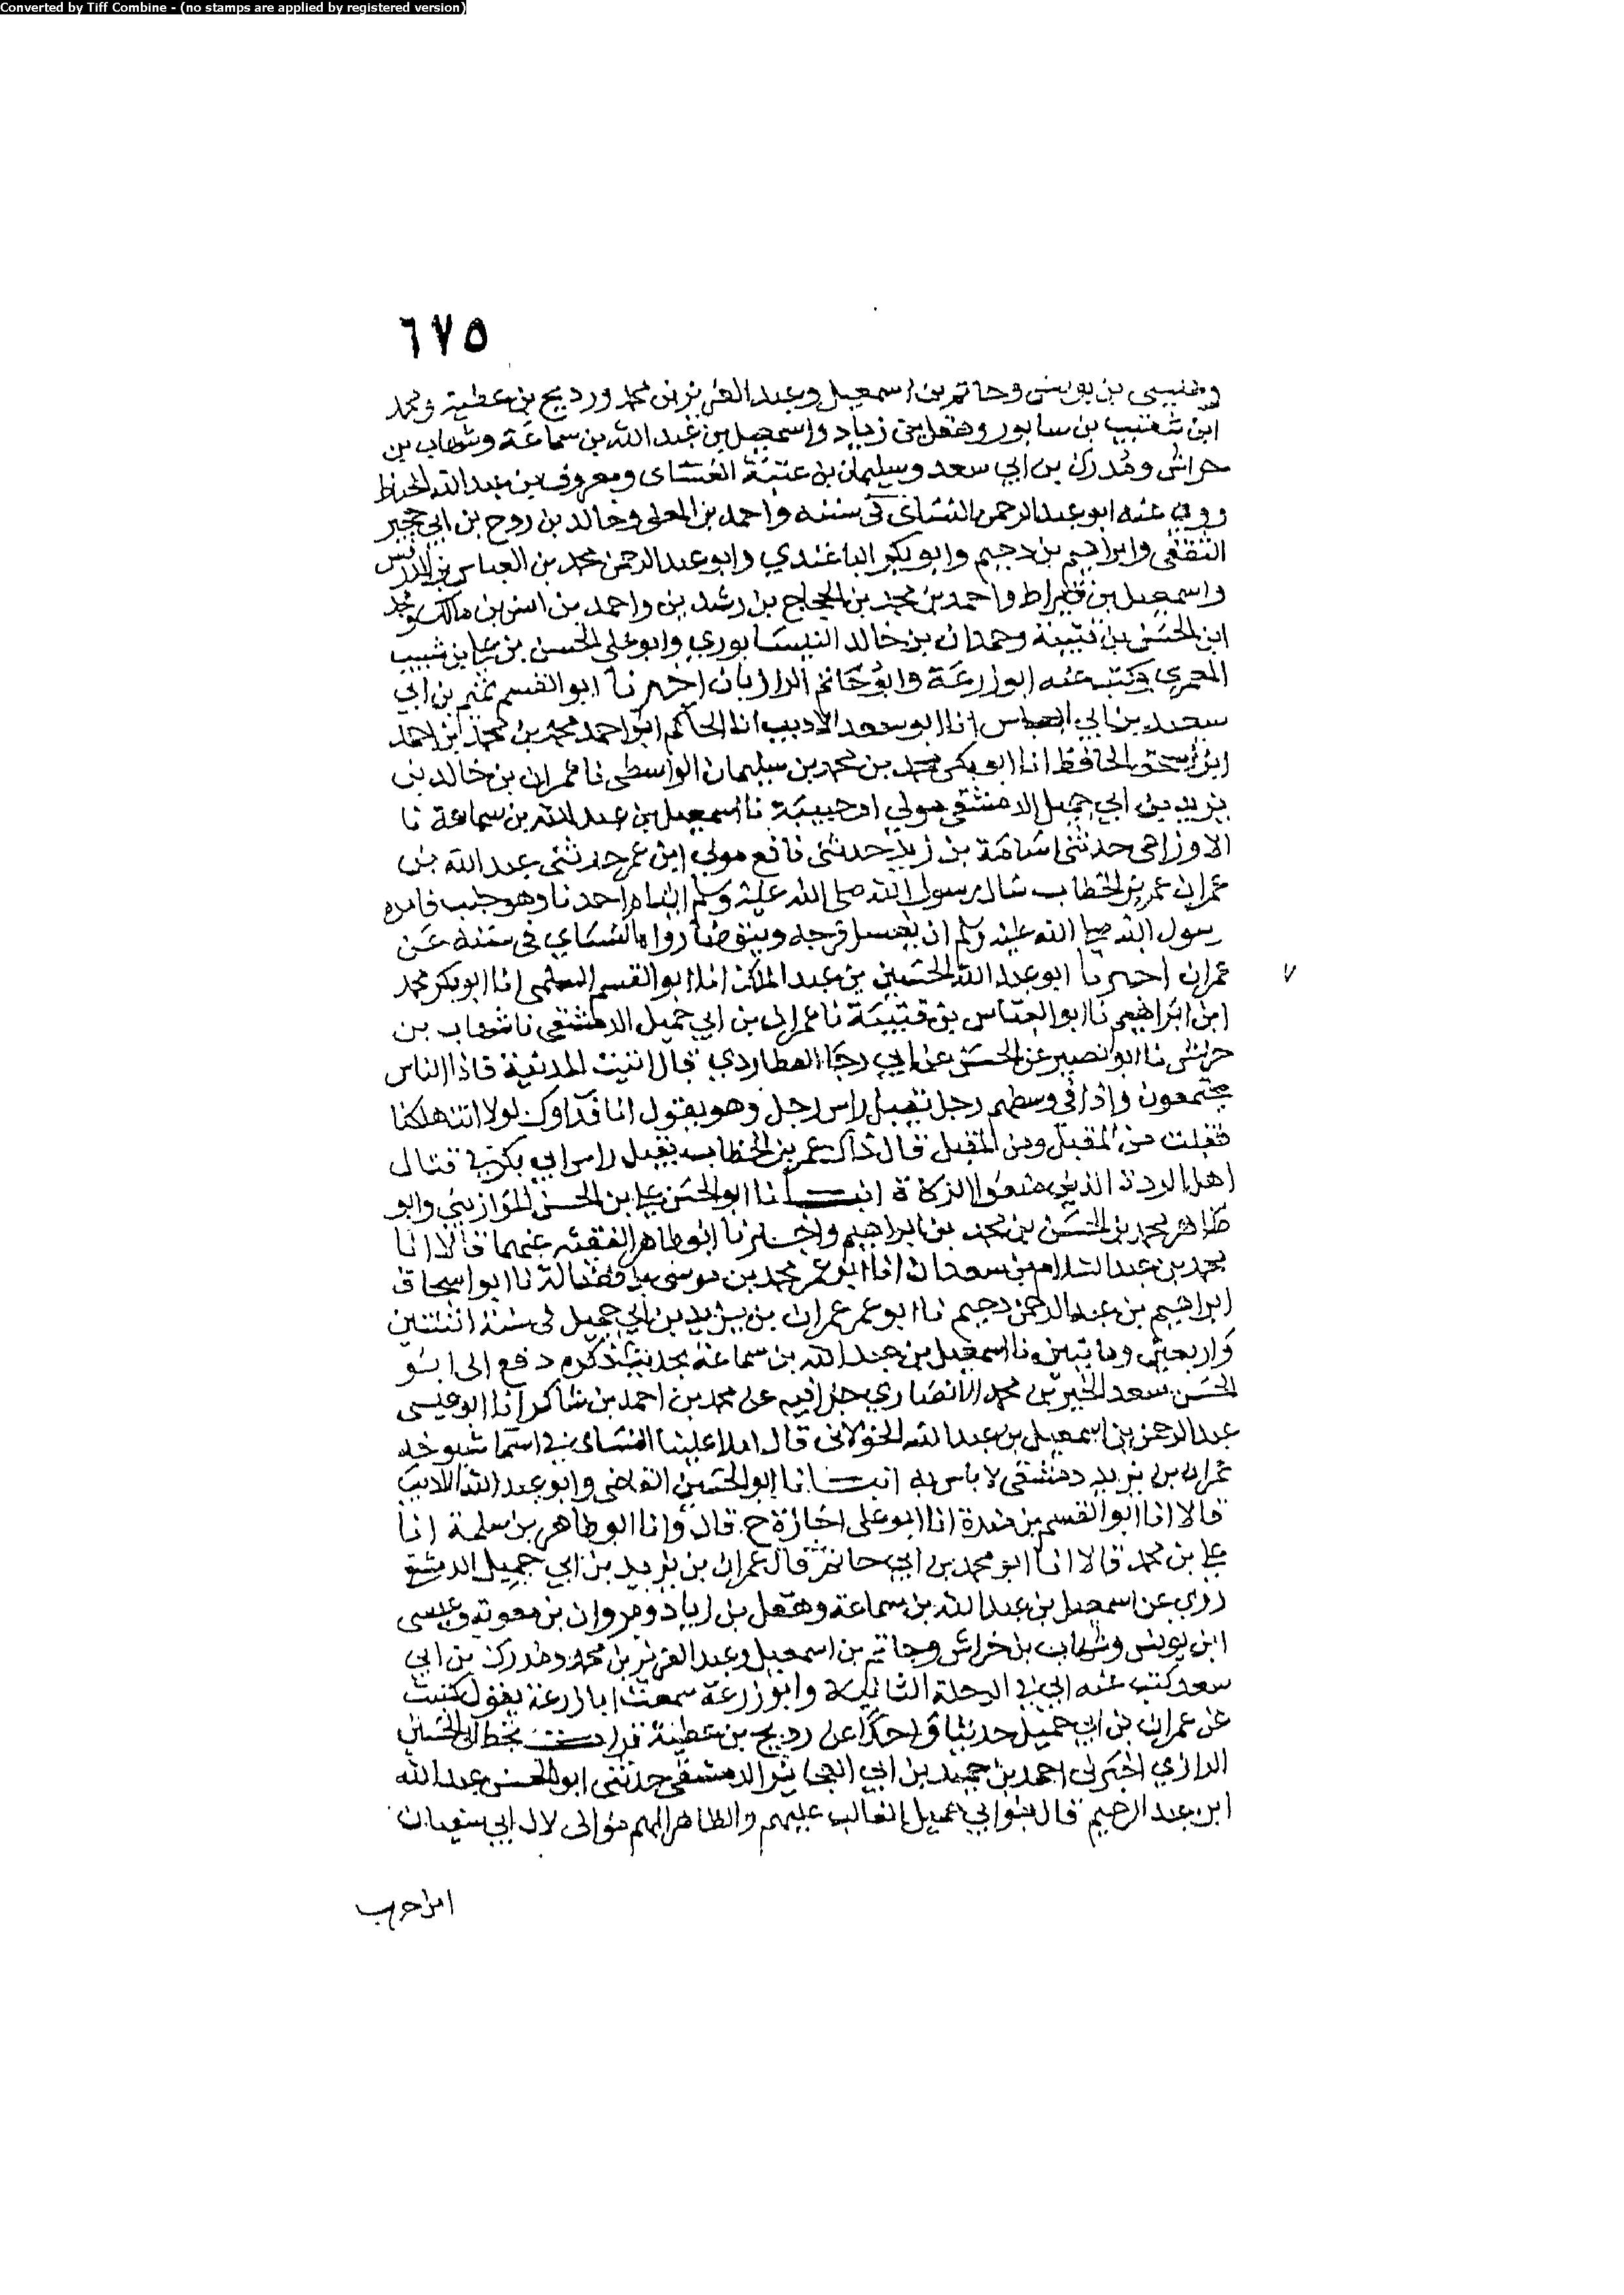 Converted by Tiff Combine - (no stamps are applied by registered version)
٦٧٥
وعيسى بن يونس وحاتم بن اسمعيل وعبد العزيز بن محمد ورديح بن عطية ومحمد
ابن شعيب بن سابور وهقل بن زياد واسمعيل بن عبد الله بن سماعة وشهاب بن
خراش ومدرك بن ابي سعد وسليمان بن عتبة الغساى ومعروف بن عبد الله الخياط
روى عنه ابو عبد الرحمن النساى في سننه واحمد بن المعلى وخالد بن روح بن ابي حجير
الثقفي وابراهيم بن دحيم وابو بكر الباغندي وابو عبد الرحمن محمد بن العباس بن الدرفس
واسمعيل بن قيراط واحمد بن محمد بن الحجاج بن رشدين واحمد بن انس بن مالك ومحمد
ابن الحسن بن قتيبة وحمدان بن خالد النيسابوري وابو على الحسن بن على بن شبيب
المعمري وكتب عنه ابو زرعة وابو حاتم الرازيان اخبرنا ابو القسم تميم بن ابي
سعيد بن ابي العباس انا ابو سعد الاديب انا الحاكم ابو احمد محمد بن محمد بن احمد
ابن اسحق الحافظ انا ابو بكر محمد بن محمد بن سليمان الواسطى نا عمران بن خالد بن
يزيد بن ابي جميل الدمشقي مولى ام حبيبة نا اسمعيل بن عبد الله بن سماعة نا
الاوزاعي حدثني اسامة بن زيد حدثنى نافع مولى ابن عمر حدثنى عبد الله بن
عمران عمر بن الخطاب سال رسول الله صلى الله عليه وسلم اينام احدنا وهو جنب فامره
رسول الله صلى الله عليه وسلم ان يغسل فرجه ويتوضا رواه النساي في سننه عن
عمران اخبرنا ابو عبد الله الحسين بن عبد الملك انا ابو القسم السلمى انا ابو بكر محمد
ابن ابراهيم نا ابو العباس بن قتيبة نا عمران بن ابي جميل الدمشقي نا شهاب بن
خراش نا ابو نصير عن الحسن عن ابي رجا العطاردي قال اتيت المدينة فاذا الناس
مجتمعون واذا في وسطهم رجل يقبل راس رجل وهو يقول انا فداوك لولا انت هلكنا
فقلت من المقبل ومن المقبل قال ذاك عمر بن الخطاب يقبل راس ابي بكر في قتال
اهل الردة الذين منعوا الزكاة انبانا ابو الحسن علي بن الحسن الموازيني وابو
طاهر محمد بن الحسن بن محمد بن ابراهيم واخبرنا ابو طاهر الفقيه عنهما قالا انا
محمد بن عبد السلام بن سعدان انا ابو عمر محمد بن موسى بن فضالة نا ابو اسحاق
ابراهيم بن عبد الرحمن دحيم نا ابو عمر عمران بن يزيد بن ابي جميل في سنة اثنتين
واربعين وماتين نا اسمعيل بن عبد الله بن سماعة بحديث ذكره دفع الى ابو
الحسن سعد الخير بن محمد الانصاري جزا فيه عن محمد بن احمد بن شاكر انا ابو عيسى
عبد الرحمن بن اسمعيل بن عبد الله الخولاني قال املا علينا النساى في اسما شيوخه
عمران بن يزيد دمشقي لا باس به انبانا ابو الحسين القاضي وابو عبد الله الاديب
قالا انا ابو القسم بن مندة انا ابو على اجازة ح قال وانا ابو طاهر بن سلمة انا
علي بن محمد قالا انا ابو محمد بن ابي حاتم قال عمران بن يزيد بن ابي جميل الدمشقي
روى عن اسمعيل بن عبد الله بن سماعة وهقل بن زياد ومروان بن معوية وعيسى
ابن يونس وشهاب بن خراش وحاتم بن اسمعيل وعبد العزيز بن محمد ومدرك بن ابي
سعد كتب عنه ابي في الرحلة الثانية وابو زرعة سمعت ابا زرعة يقول كتبت
عن عمران بن ابي جميل حديثا واحدا عن رديح بن عطية قرات بخط ابي الحسين
الرازي اخبرني احمد بن حميد بن ابي العجايز الدمشقي حدثنى ابو الحسن عبد الله
ابن عبد الرحيم قال بنو ابي جميل الغالب عليهم والظاهر انهم موالى لال ابي سفيان
ابن حرب